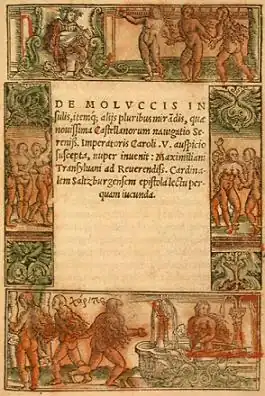 DE MOLVCCIS IN
sulis, itemq; alijs pluribus mirãdis, quæ
nouissima Castellanorum nauigatio Se-
reniss. Imperatoris Caroli .V. auspicio
suscepta, nuper inuenit: Maximiliani
Transyluani ad Reuerendiss. Cardina-
lem Saltzburgensem epistola lectu per-
quam iucunda.